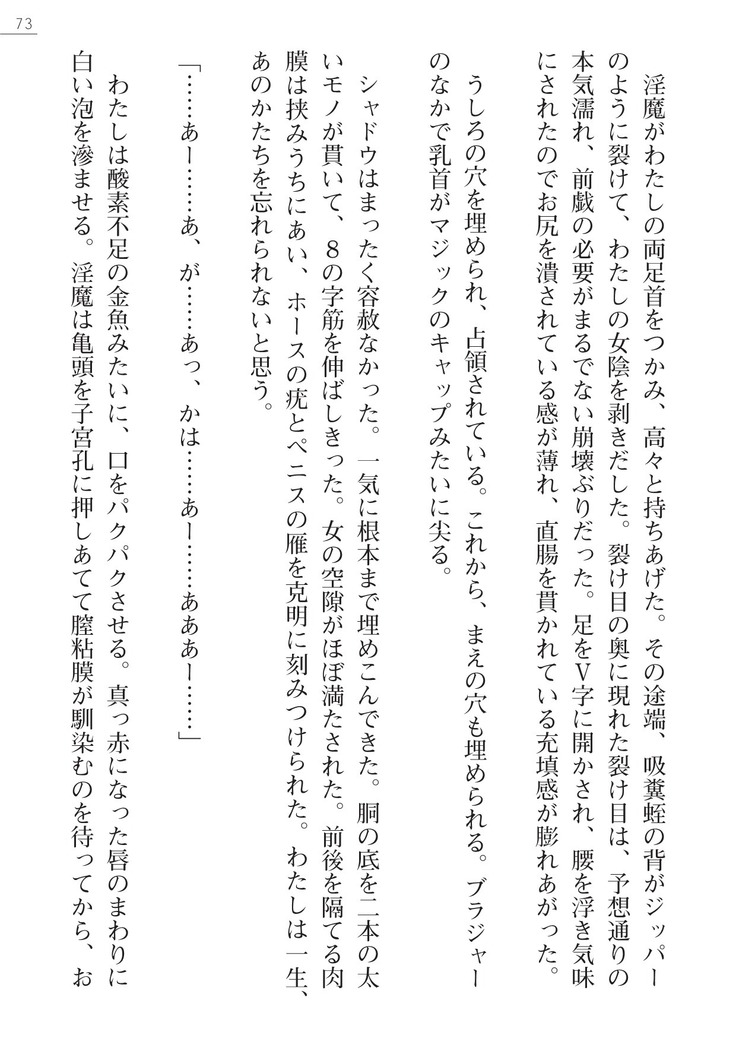 73
　淫魔がわたしの両足首をつかみ、高々と持ちあげた。その途端、吸糞蛭の背がジッパー
のように裂けて、わたしの女陰を剥きだした。裂け目の奥に現れた裂け目は、予想通りの
本気濡れ、前戯の必要がまるでない崩壊ぶりだった。足をＶ字に開かされ、腰を浮き気味
にされたのでお尻を潰されている感が薄れ、直腸を貫かれている充填感が膨れあがった。
　うしろの穴を埋められ、占領されている。これから、まえの穴も埋められる。ブラジャー
のなかで乳首がマジックのキャップみたいに尖る。
　シャドウはまったく容赦なかった。一気に根本まで埋めこんできた。胴の底を二本の太
いモノが貫いて、８の字筋を伸ばしきった。女の空隙がほぼ満たされた。前後を隔てる肉
膜は挟みうちにあい、ホースの疣とペニスの雁を克明に刻みつけられた。わたしは一生、
あのかたちを忘れられないと思う。
「……あー……あ、が……あっ、かは……あー……あああー……」
　わたしは酸素不足の金魚みたいに、口をパクパクさせる。真っ赤になった唇のまわりに
白い泡を滲ませる。淫魔は亀頭を子宮孔に押しあてて膣粘膜が馴染むのを待ってから、お